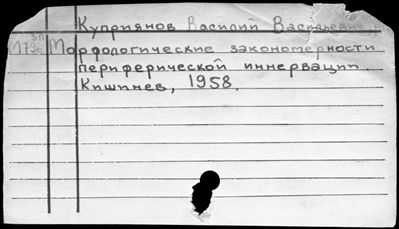 Куприянов Василий Васильевич
Морфологические закономерности
периферической иннервации
Кишинев, 1958.